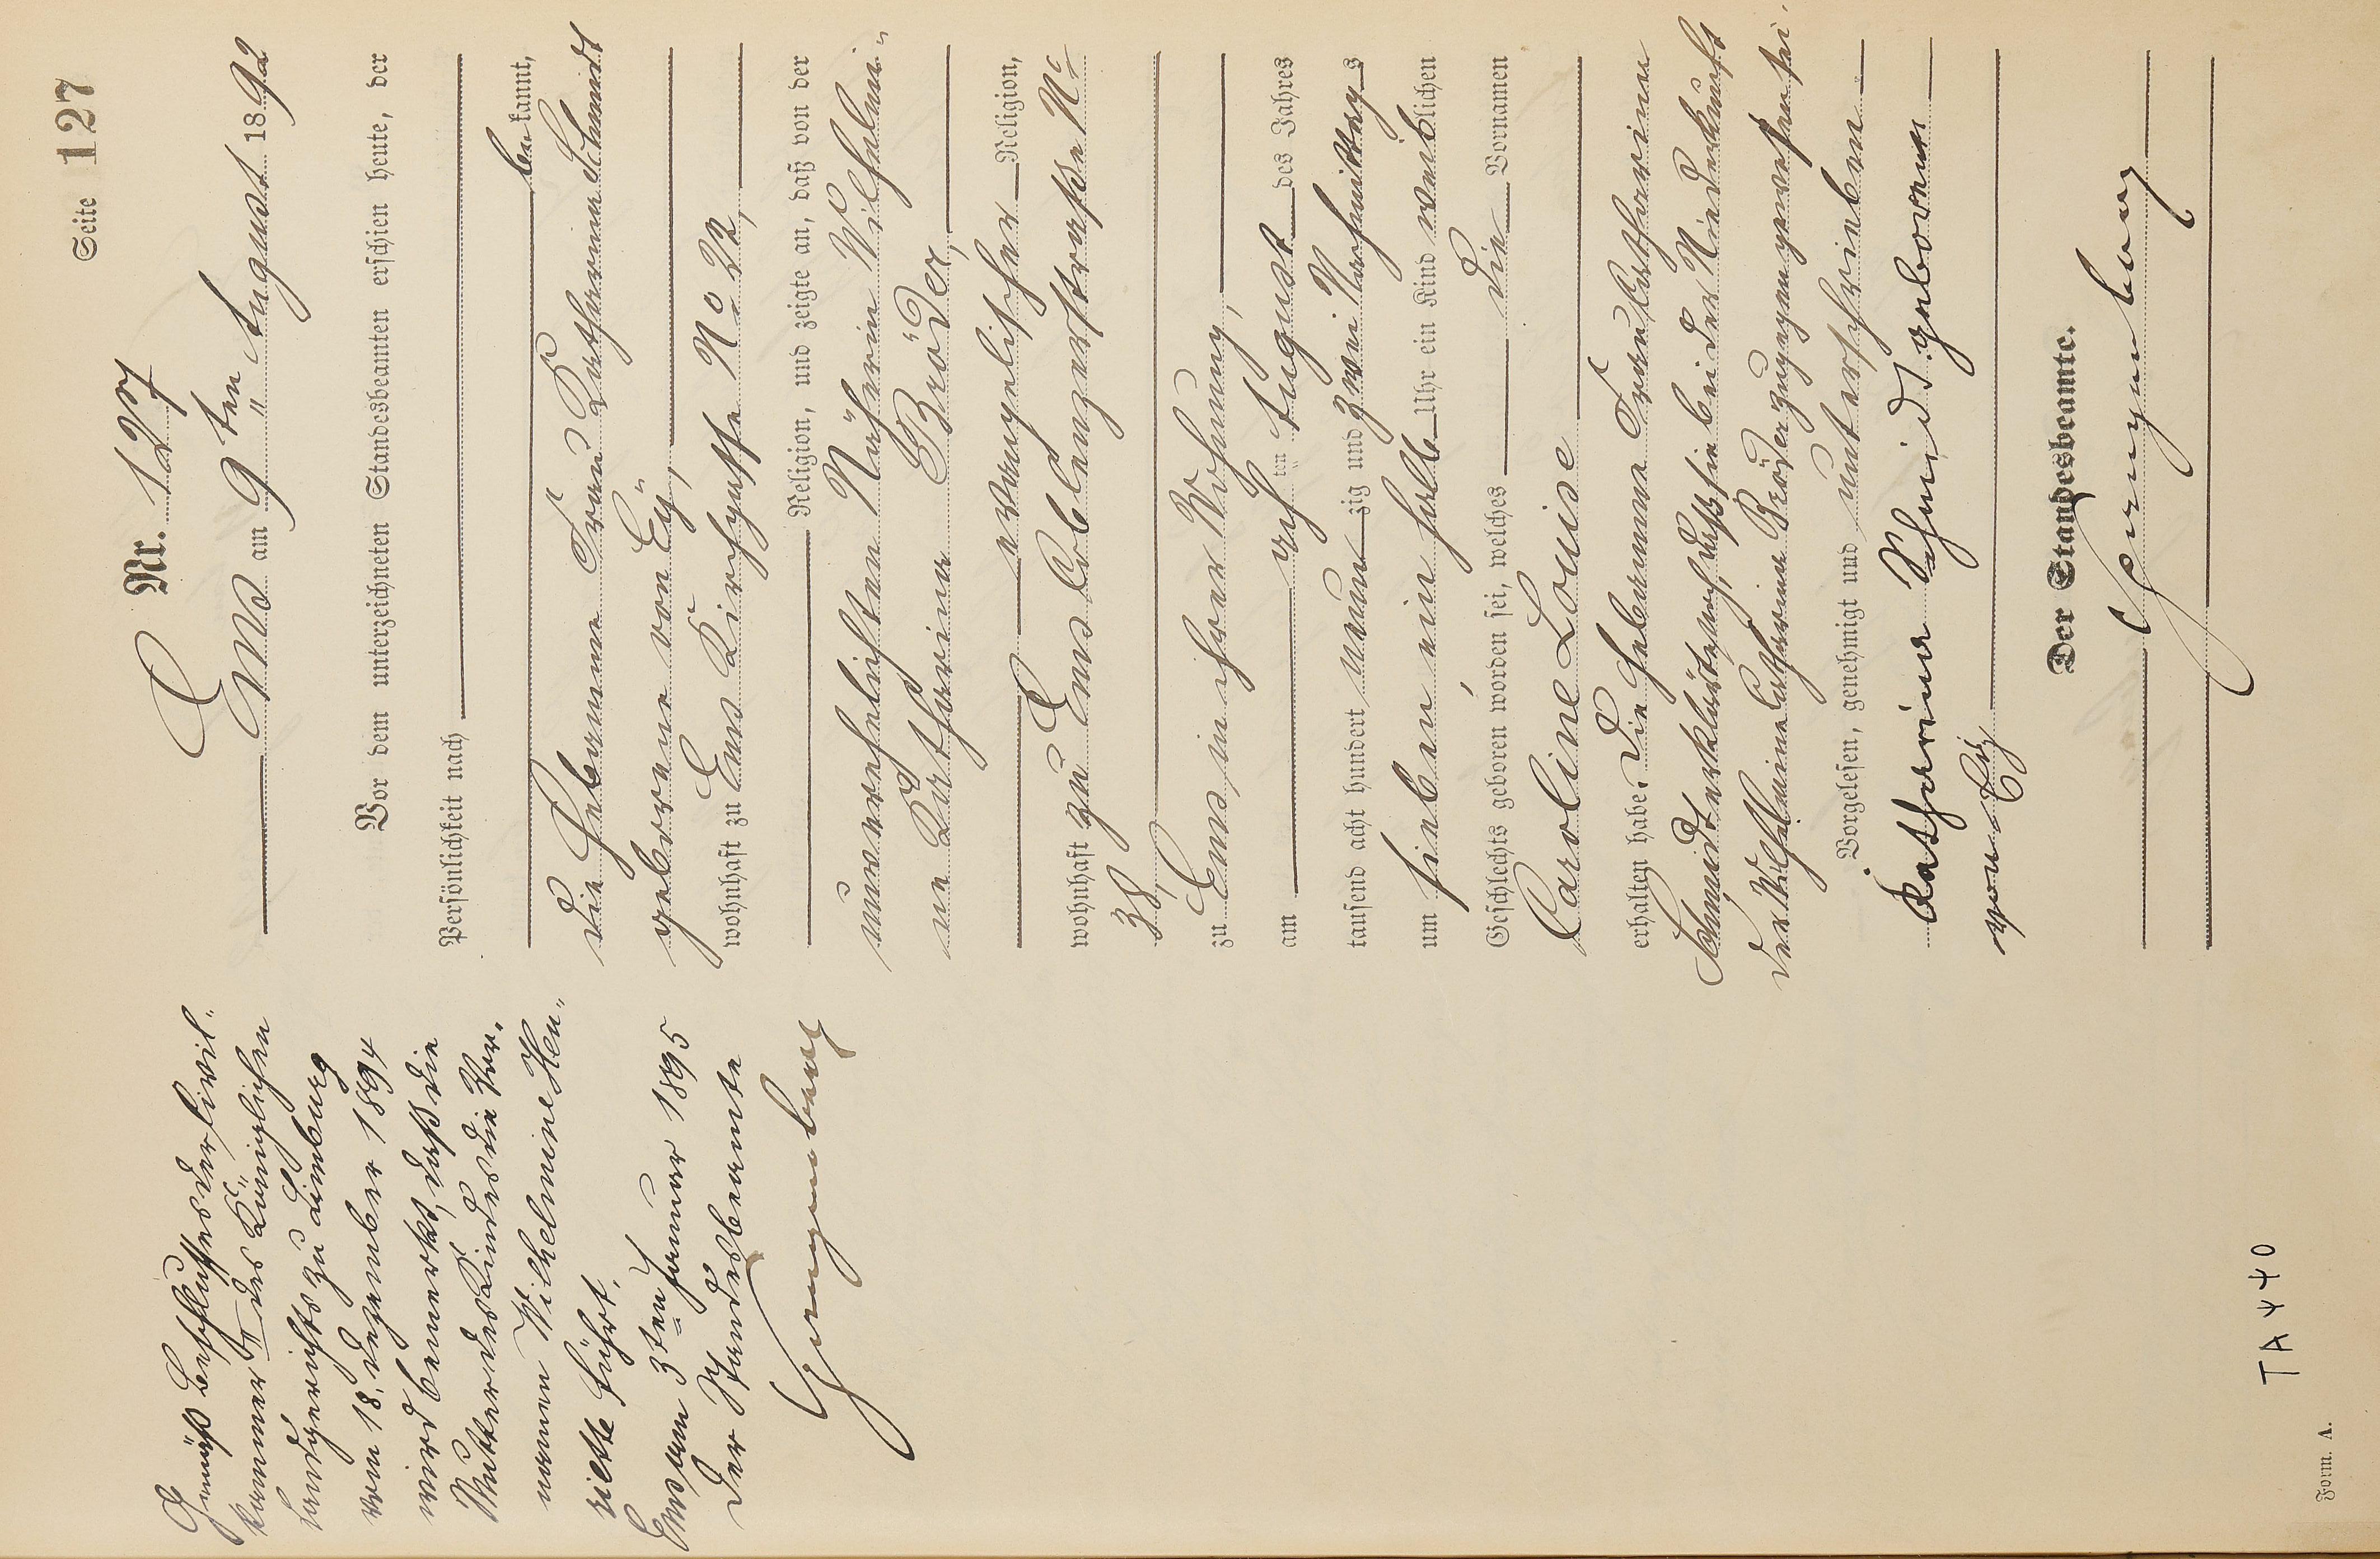 Seite 127
Nr. 127
Ems am 9ten August 1892
Vor dem unterzeichneten Standesbeamten erschien heute, der
Persönlichkeit nach
bekannt,
die Hebamme Frau Katharina Schmidt
geborene von Eÿ,
wohnhaft zu Ems Kirchgasse No 22,
Religion, und zeigte an, daß von der
unverehelichten Näherin Wilhelmi-
ne Katharina Bröder,
evangelischer Religion,
wohnhaft zu Ems Coblenzerstraße No
38,
zu Ems in ihrer Wohnung,
am acht ten August des Jahres
tausend acht hundert neunzig und zwei Nachmittags
um sieben ein halb Uhr ein Kind weiblichen
Geschlechts geboren worden sei, welches die Vornamen
Caroline Louise
erhalten habe. Die Hebamme Frau Catharina
Schmidt erklärte auch, daß sie bei der Niederkunft
der Wilhelmina Catharina Bröder zugegen gewesen sei.
Vorgelesen, genehmigt und unterschrieben
Katharina Schmidt geborene
von Eÿ
Der Standesbeamte.
Gemäß Beschlusses der Civil-
kammer II des Königlichen
Landgerichts zu Limburg
vom 18. Dezember 1894
wird bemerkt, daß die
Mutter des Kindes die Vor-
namen Wilhelmine Hen-
riette führt.
Ems am 3ten Januar 1895
Der Standesbeamte
TA 440
Form. A.